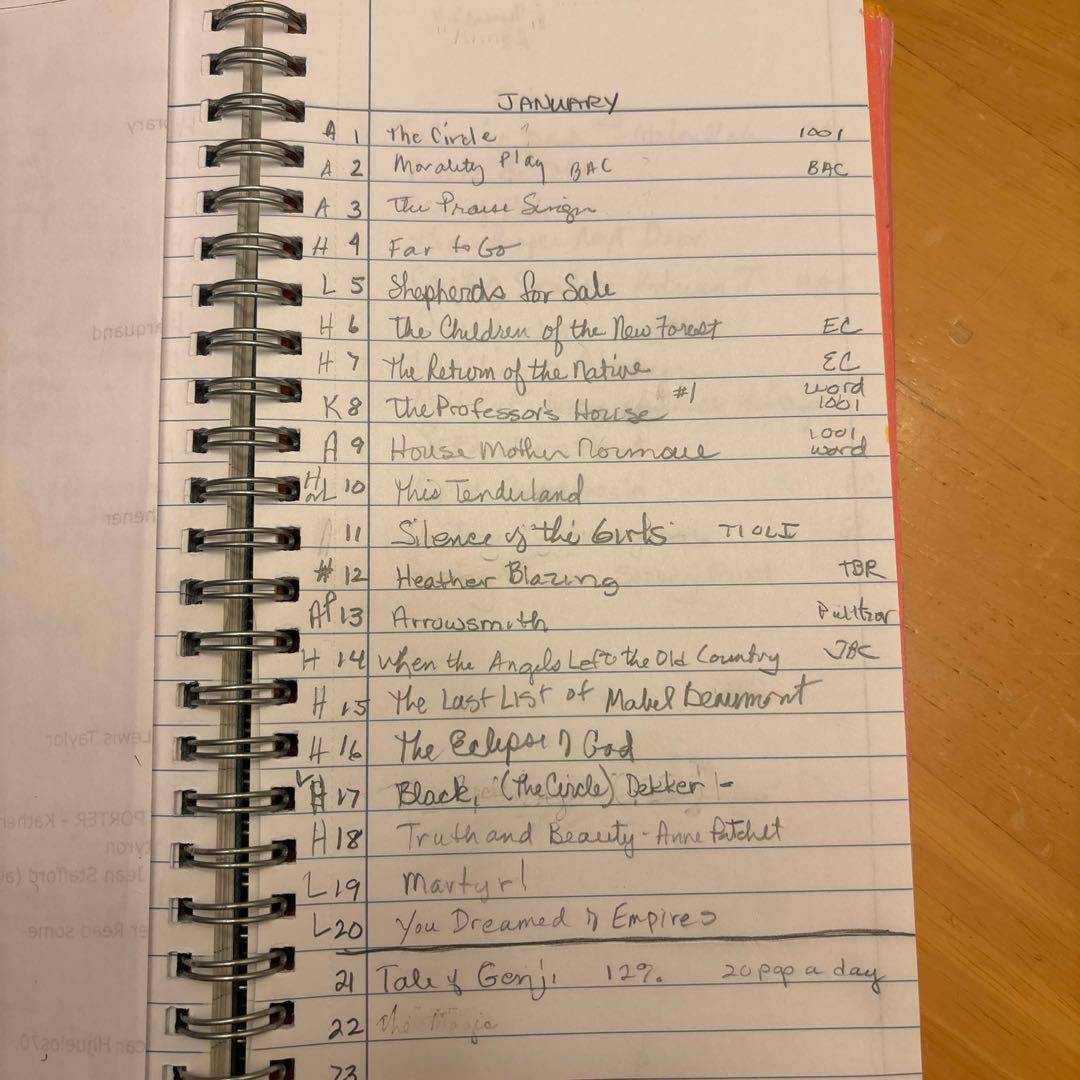 JANUARY
A 1 The Circle 1001
A 2 Morality Play BAC BAC
A 3 The Praise Singer
H 4 Far to Go
L 5 Shepherds for Sale
H 6 The Children of the New Forest EC
H 7 The Return of the Native EC
K 8 The Professor's House #1 word 1001
A 9 House Mother Normal 1001 word
H L 10 This Tenderland
11 Silence of the Girls TIOLI
# 12 Heather Blazing TBR
AP 13 Arrowsmith
H 14 When the Angels Left the Old Country JBC
H 15 The Last List of Mabel Beaumont
H 16 The Eclipse of God
H 17 Black, (The Circle) Dekker 1-
H 18 Truth and Beauty - Anne Patchet
L 19 Martyr!
L 20 You Dreamed of Empires
21 Tale of Genji 12%. 20 pgs a day
22 the
23